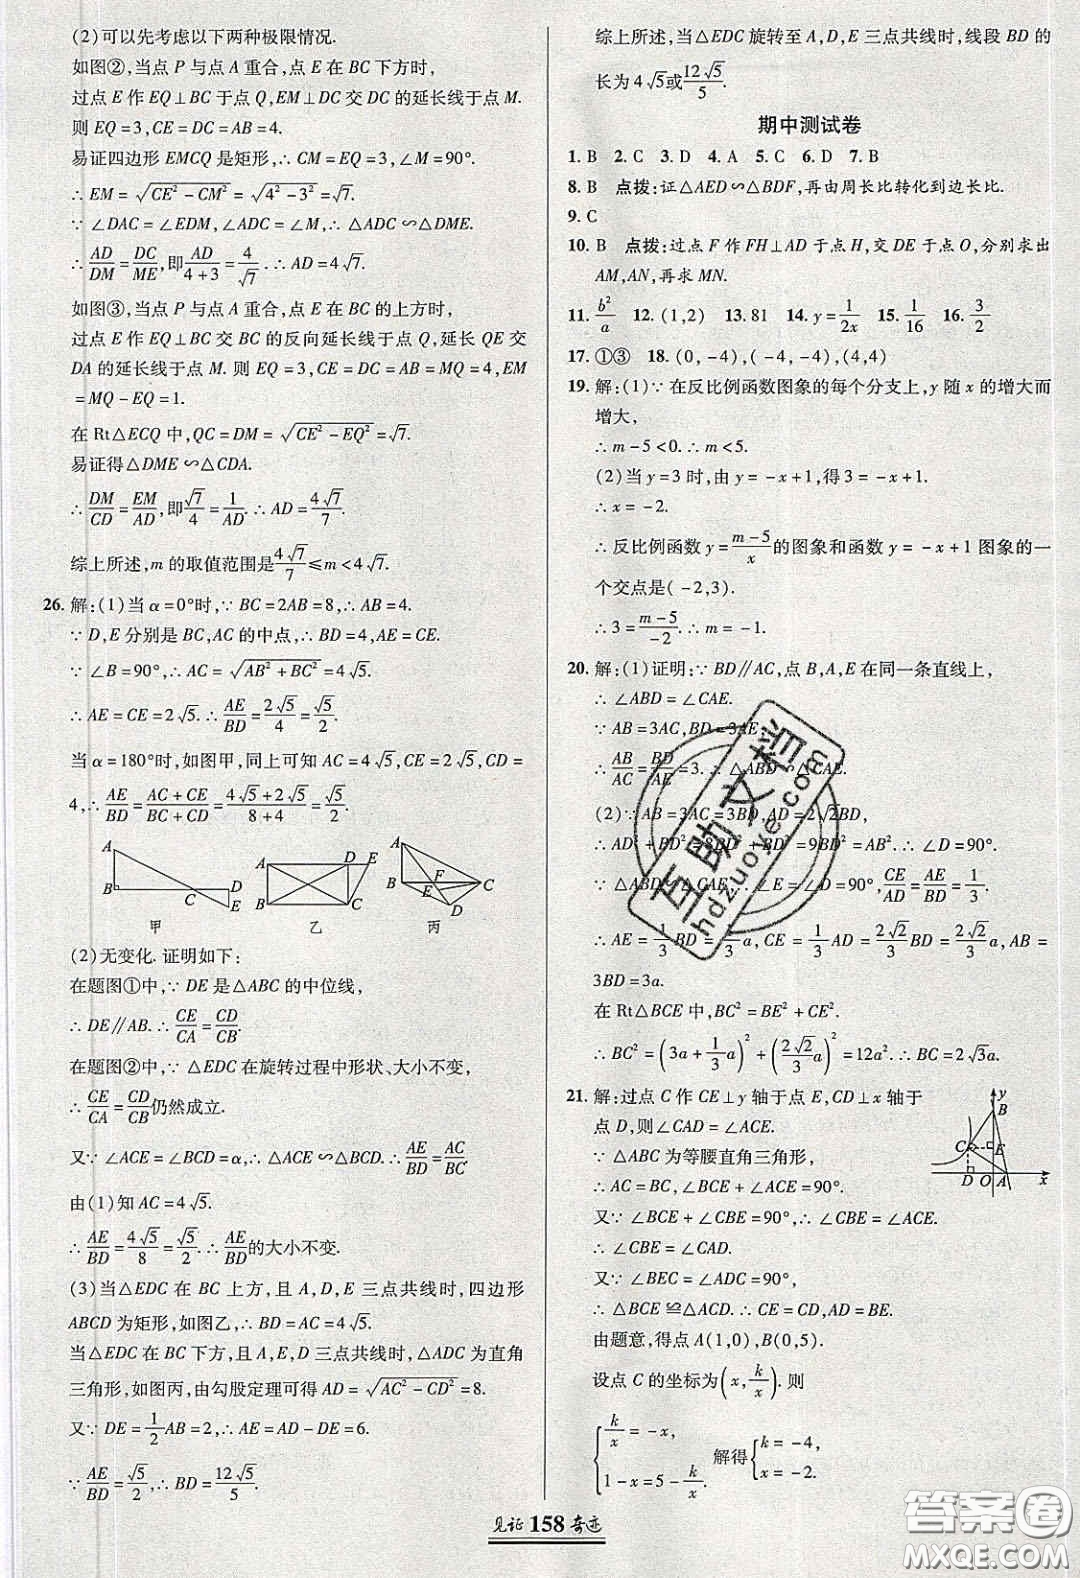 (2)可以先考虑以下两种极限情况.
如图②,当点 P 与点 A 重合,点 E 在 BC 下方时,
过点 E 作 EQ⊥BC 于点 Q,EM⊥DC 交 DC 的延长线于点 M.
则 EQ=3,CE=DC=AB=4.
易证四边形 EMCQ 是矩形,∴CM=EQ=3,∠M=90°.
∴EM=√(CE²-CM²)=√(4²-3²)=√7.
∵∠DAC=∠EDM,∠ADC=∠M,∴△ADC∽△DME.
∴AD/DM=DC/ME,即AD/(4+3)=4/√7.∴AD=4√7.
如图③,当点 P 与点 A 重合,点 E 在 BC 的上方时,
过点 E 作 EQ⊥BC 的反向延长线于点 Q,延长 QE 交
DA 的延长线于点 M. 则 EQ=3,CE=DC=AB=MQ=4,EM
=MQ-EQ=1.
在 Rt△ECQ 中,QC=DM=√(CE²-EQ²)=√7.
易证得△DME∽△CDA.
∴DM/CD=EM/AD,即√7/4=1/AD.∴AD=4√7/7.
综上所述,m 的取值范围是4√7/7≤m<4√7.
26. 解:(1)当 α=0°时,∵BC=2AB=8,∴AB=4.
∵D,E 分别是 BC,AC 的中点,∴BD=4,AE=CE.
∵∠B=90°,∴AC=√(AB²+BC²)=4√5.
∴AE=CE=2√5.∴AE/BD=2√5/4=√5/2.
当 α=180°时,如图甲,同上可知 AC=4√5,CE=2√5,CD=
4,∴AE/BD=(AC+CE)/(BC+CD)=(4√5+2√5)/(8+4)=√5/2.
A B C D E 甲
A D E B C 乙
A F B E C D 丙
(2)无变化. 证明如下:
在题图①中,∵DE 是△ABC 的中位线,
∴DE∥AB.∴CE/CA=CD/CB.
在题图②中,∵△EDC 在旋转过程中形状、大小不变,
∴CE/CA=CD/CB仍然成立.
又∵∠ACE=∠BCD=α,∴△ACE∽△BCD.∴AE/BD=AC/BC.
由(1)知 AC=4√5.
∴AE/BD=4√5/8=√5/2.∴AE/BD的大小不变.
(3)当△EDC 在 BC 上方,且 A,D,E 三点共线时,四边形
ABCD 为矩形,如图乙,∴BD=AC=4√5.
当△EDC 在 BC 下方,且 A,E,D 三点共线时,△ADC 为直角
三角形,如图丙,由勾股定理可得 AD=√(AC²-CD²)=8.
又∵DE=1/2AB=2,∴AE=AD-DE=6.
∵AE/BD=√5/2,∴BD=12√5/5.
综上所述,当△EDC 旋转至 A,D,E 三点共线时,线段 BD 的
长为 4√5或12√5/5.
期中测试卷
1. B 2. C 3. D 4. A 5. C 6. D 7. B
8. B 点拨:证△AED∽△BDF,再由周长比转化到边长比.
9. C
10. B 点拨:过点 F 作 FH⊥AD 于点 H,交 DE 于点 O,分别求出
AM,AN,再求 MN.
11. b²/a 12. (1,2) 13. 81 14. y=1/2x 15. 1/16 16. 3/2
17. ①③ 18. (0,-4),(-4,-4),(4,4)
19. 解:(1)∵在反比例函数图象的每个分支上,y 随 x 的增大而
增大,
∴m-5<0.∴m<5.
(2)当 y=3 时,由 y=-x+1,得 3=-x+1.
∴x=-2.
∴反比例函数 y=(m-5)/x的图象和函数 y=-x+1 图象的一
个交点是(-2,3).
∴3=(m-5)/-2.∴m=-1.
20. 解:(1)证明:∵BD∥AC,点 B,A,E 在同一条直线上,
∴∠ABD=∠CAE.
∵AB=3AC,BD=3AE,
∴AB/AC=BD/AE=3.∴△ABD∽△CAE.
(2)∵AB=3AC=3BD,AD=2√2BD,
∴AD²+BD²=8BD²+BD²=9BD²=AB².∴∠D=90°.
∵△ABD∽△CAE,∴∠E=∠D=90°,CE/AD=AE/BD=1/3.
∴AE=1/3BD=1/3a,CE=1/3AD=2√2/3BD=2√2/3a,AB=
3BD=3a.
在 Rt△BCE 中,BC²=BE²+CE².
∴BC²=(3a+1/3a)²+(2√2/3a)²=12a².∴BC=2√3a.
21. 解:过点 C 作 CE⊥y 轴于点 E,CD⊥x 轴于
点 D,则∠CAD=∠ACE.
∵△ABC 为等腰直角三角形,
∴AC=BC,∠BCE+∠ACE=90°.
又∵∠BCE+∠CBE=90°,∴∠CBE=∠ACE.
∴∠CBE=∠CAD.
又∵∠BEC=∠ADC=90°,
∴△BCE≌△ACD.∴CE=CD,AD=BE.
由题意,得点 A(1,0),B(0,5).
设点 C 的坐标为(x,k/x). 则
{k/x=-x, 1-x=5-k/x. 解得{k=-4, x=-2.
y B C E D O A x
互助文档
hdzuoye.com
见证 158 奇迹
答案圈
MXQE.COM